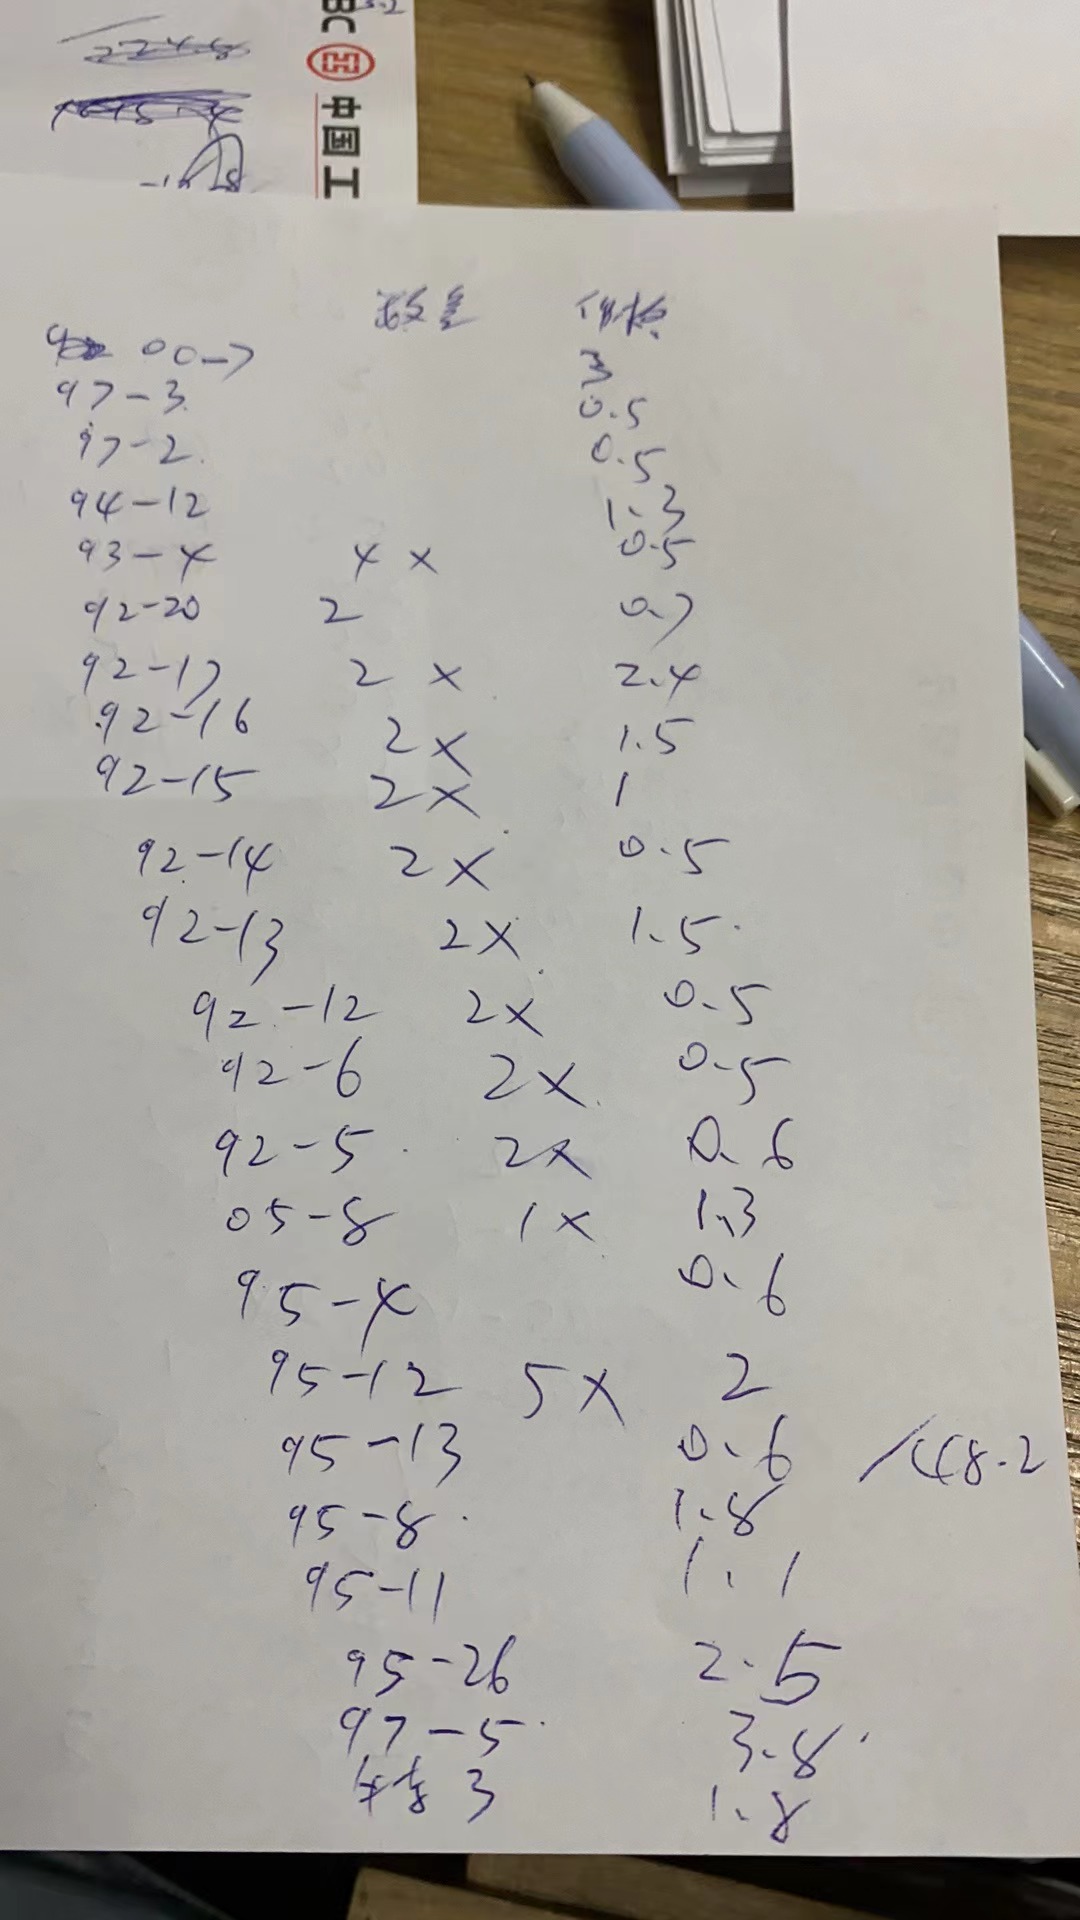 BC
中国工
数量 价格
00-7 3
97-3 0.5
97-2 0.5
94-12 1.3
93-4 4× 0.5
92-20 2 0.7
92-17 2× 2.4
92-16 2× 1.5
92-15 2× 1
92-14 2× 0.5
92-13 2× 1.5
92-12 2× 0.5
92-6 2× 0.5
92-5 2× 0.6
05-8 1× 1.3
95-4 0.6
95-12 5× 2
95-13 0.6 /48.2
95-8 1.8
95-11 1.1
95-26 2.5
97-5 3.8
3 1.8